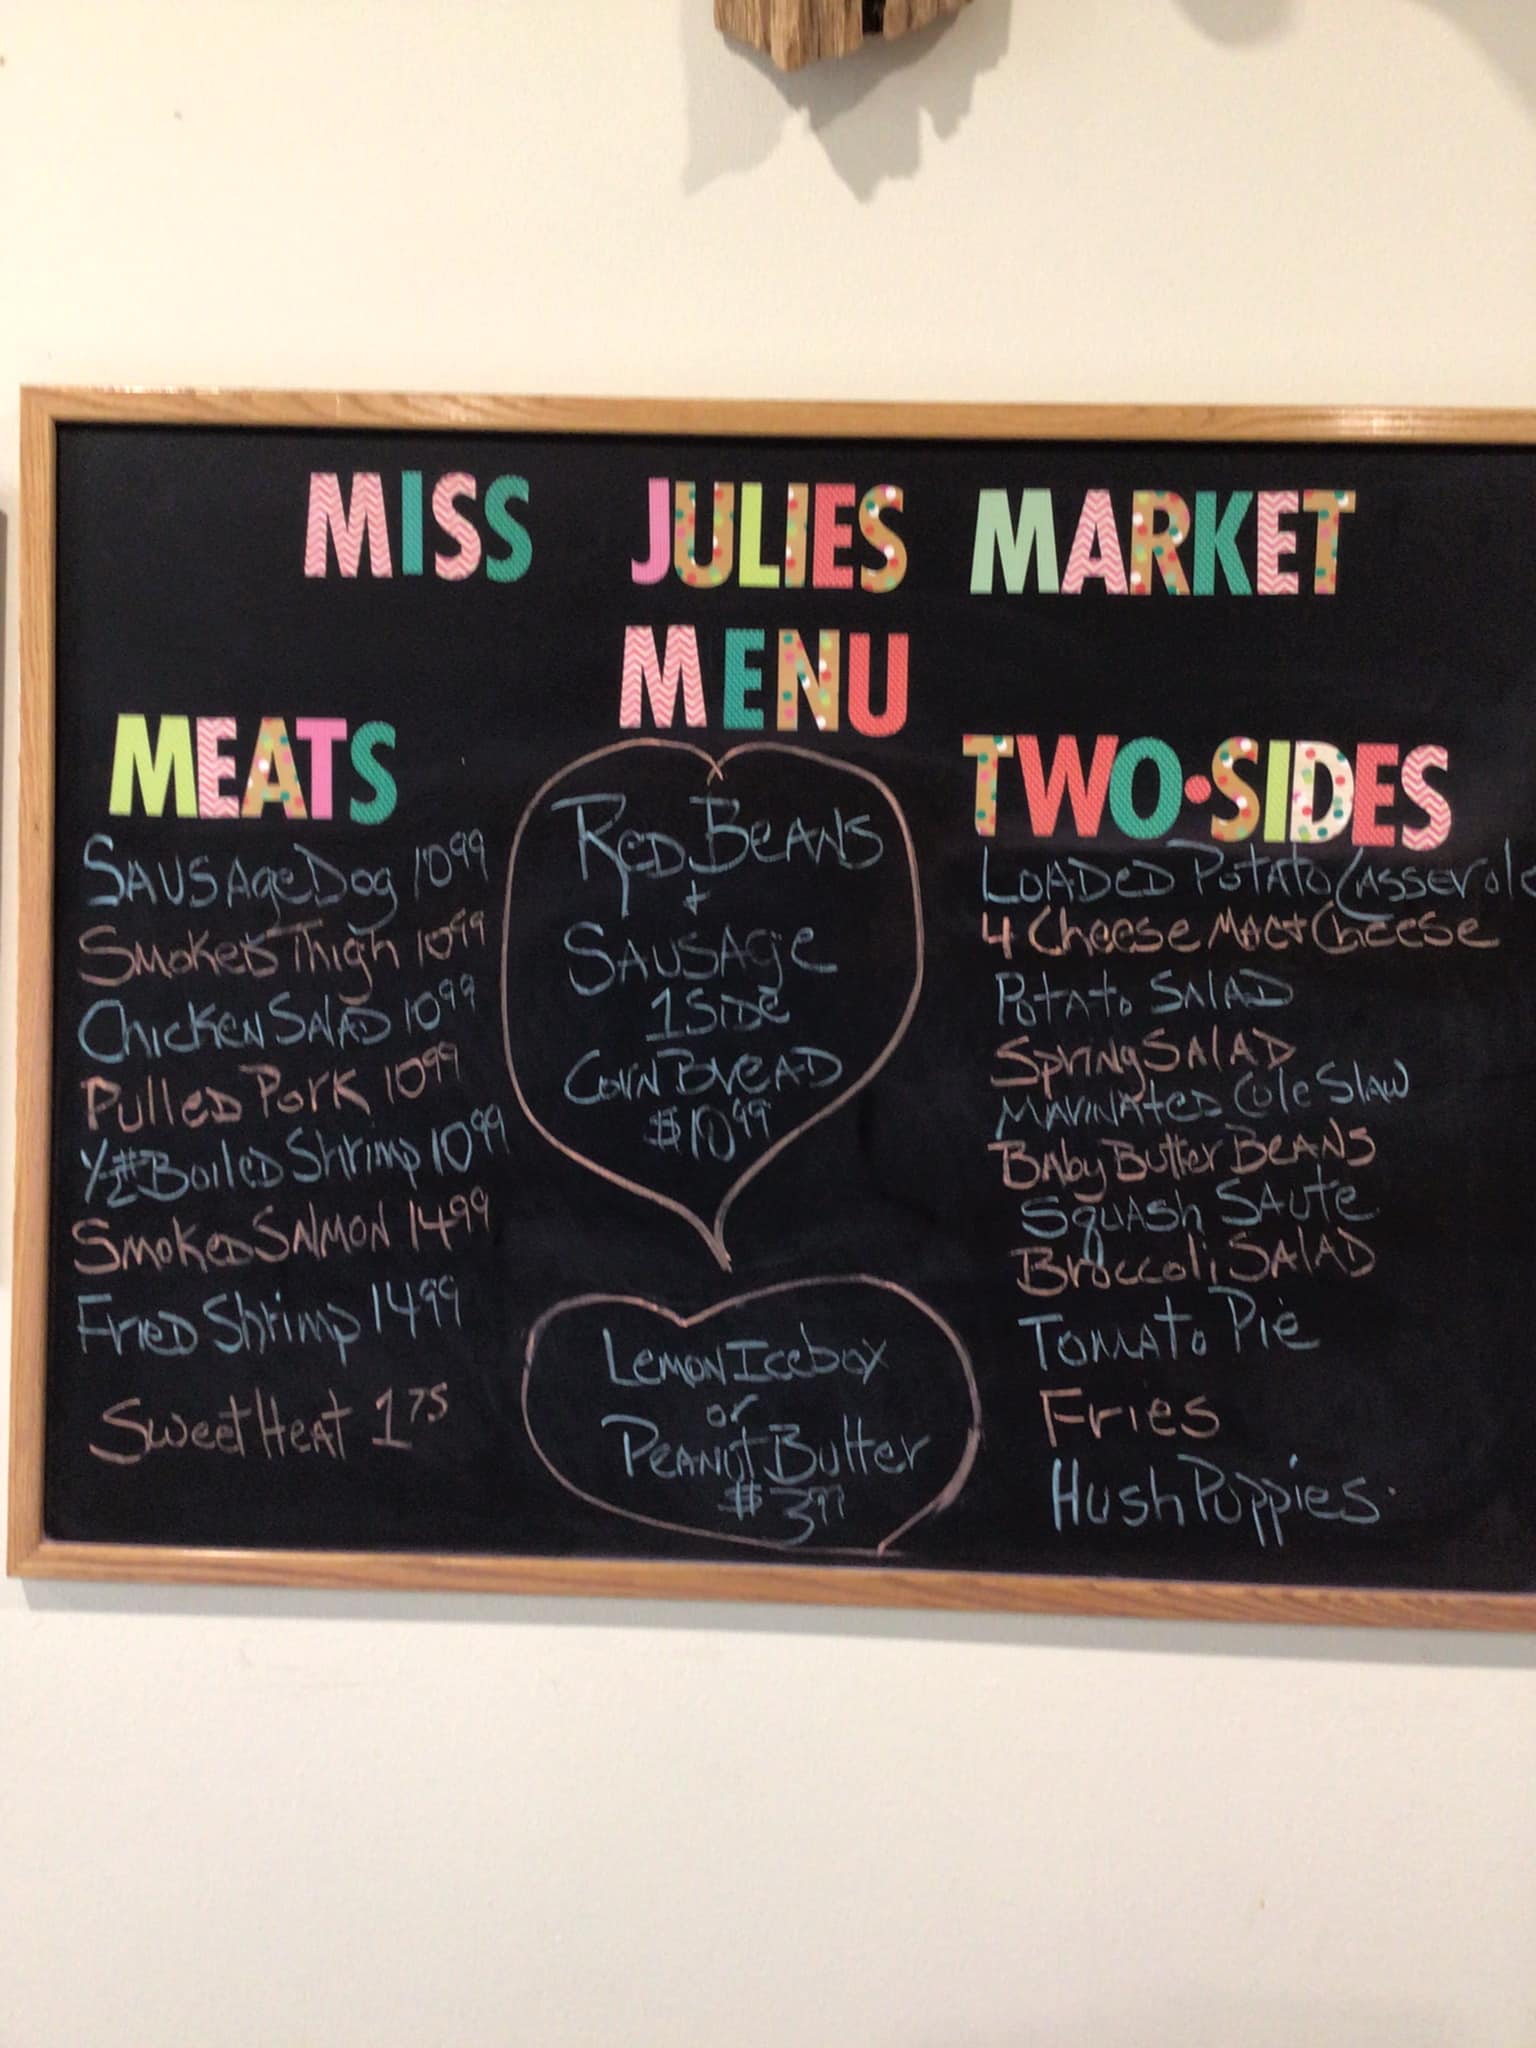 MISS JULIES MARKET
MENU
MEATS
SAUSAge Dog 10.99
SMOKED Thigh 10.99
Chicken SALAD 10.99
Pulled Pork 10.99
1/2# Boiled Shrimp 10.99
SMOKED SALMON 14.99
FRIED Shrimp 14.99
Sweet HEAT 1.75
RED BEANS
+
SAUSAGE
1 SIDE
CORN BREAD
$10.99
LEMON Icebox
or
PEANUT Butter
$3.99
TWO•SIDES
LOADED POTATO CASSEROLE
4 Cheese MAC & Cheese
Potato SALAD
Spring SALAD
MARINATED Cole Slaw
Baby Butter BEANS
Squash SAUTE
Broccoli SALAD
TOMATO Pie
Fries
Hush Puppies